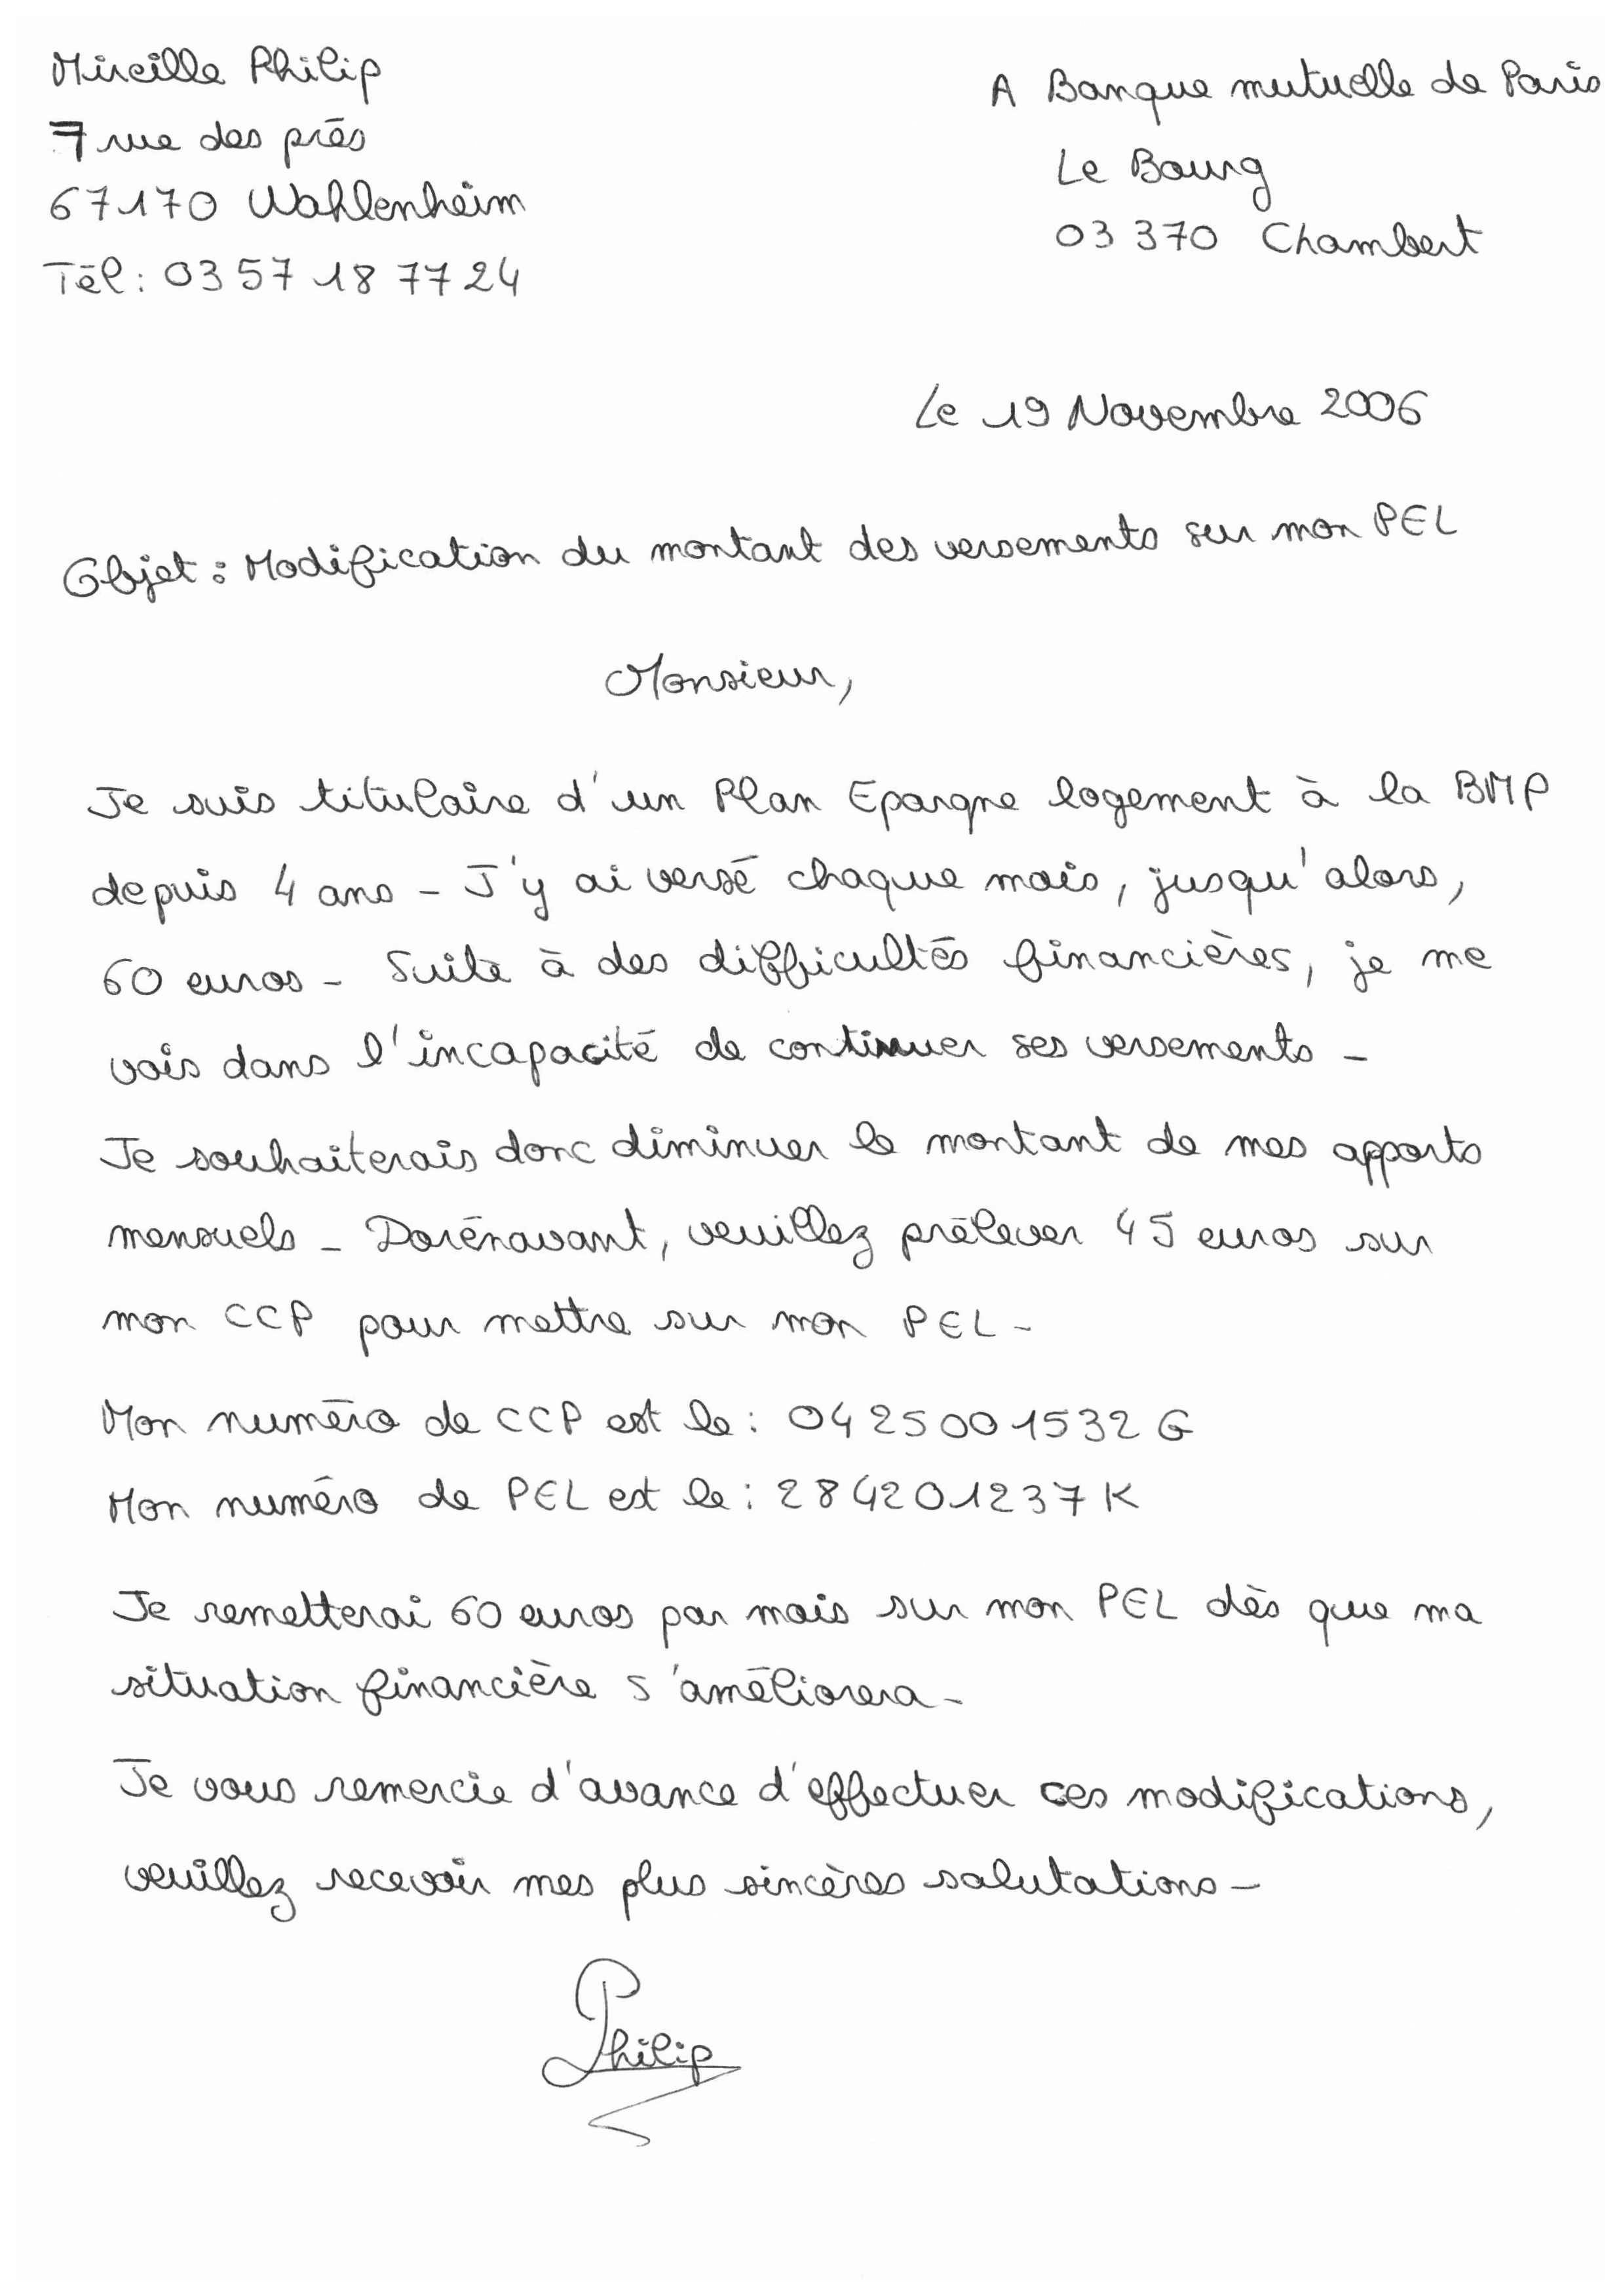 Mireille Philip
7 rue des prés
67170 Wahlenheim
Tél : 03 57 18 77 24
A Banque mutuelle de Paris
Le Bourg
03 370 Chambert
Le 19 Novembre 2006
Objet : Modification du montant des versements sur mon PEL
Monsieur,
Je suis titulaire d'un Plan Epargne logement à la BMP
depuis 4 ans - J'y ai versé chaque mois, jusqu'alors,
60 euros - Suite à des difficultés financières, je me
vois dans l'incapacité de continuer ses versements -
Je souhaiterais donc diminuer le montant de mes apports
mensuels - Dorénavant, veuillez prélever 45 euros sur
mon CCP pour mettre sur mon PEL -
Mon numéro de CCP est le : 0425001532G
Mon numéro de PEL est le : 284201237K
Je remetterai 60 euros par mois sur mon PEL dès que ma
situation financière s'améliorera -
Je vous remercie d'avance d'effectuer ces modifications,
veuillez recevoir mes plus sincères salutations -
Philip